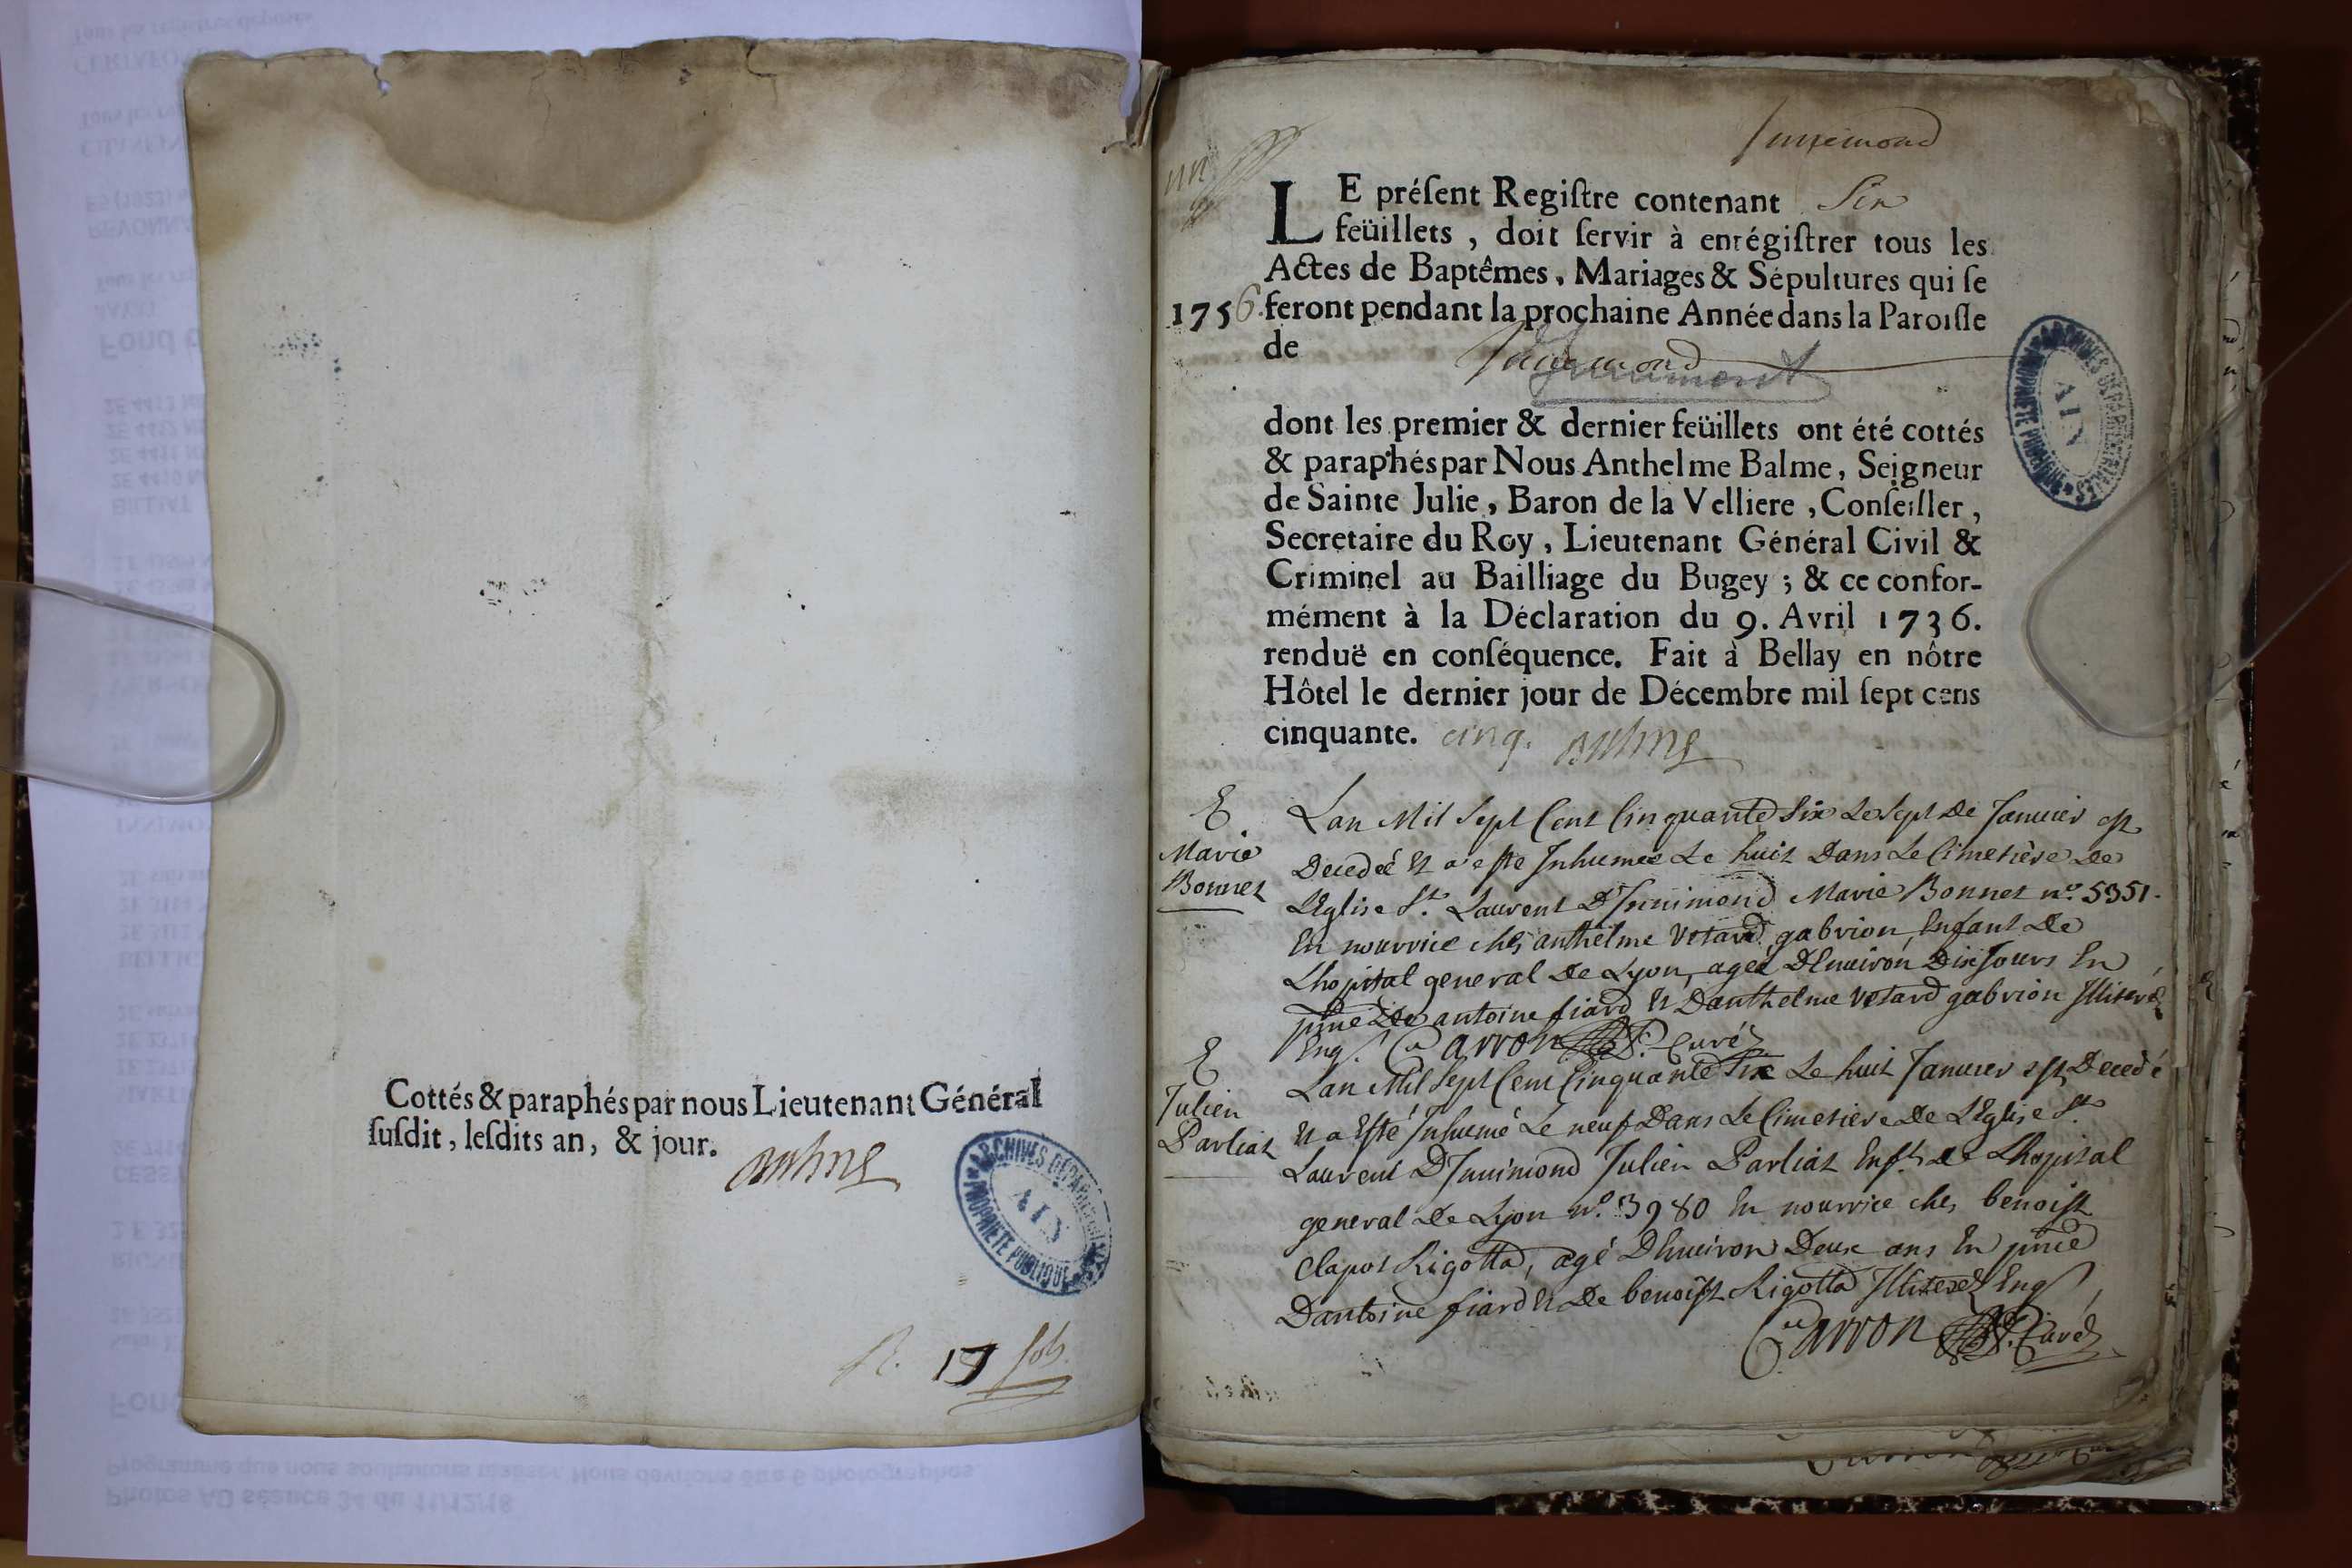 Cottés & paraphés par nous Lieutenant Général
ſuſdit, leſdits an, & jour.
ARCHIVES DÉPARTEMENTALES
AIN
PROPRIÉTÉ PUBLIQUE
R. 17 ſols
Innimond
LE préſent Regiſtre contenant Six
feüillets, doit ſervir à enrégiſtrer tous les
Actes de Baptêmes, Mariages & Sépultures qui ſe
1756. feront pendant la prochaine Année dans la Paroiſſe
de Innimond
Innimont
dont les premier & dernier feüillets ont été cottés
& paraphés par Nous Anthelme Balme, Seigneur
de Sainte Julie, Baron de la Velliere, Conſeiller,
Secretaire du Roy, Lieutenant Général Civil &
Criminel au Bailliage du Bugey; & ce confor-
mément à la Déclaration du 9. Avril 1736.
renduë en conſéquence. Fait à Bellay en nôtre
Hôtel le dernier jour de Décembre mil ſept cens
cinquante. cinq.
ARCHIVES DÉPARTEMENTALES
AIN
PROPRIÉTÉ PUBLIQUE
E
Marie
Bonnet
Lan Mil Sept Cent Cinquante Six Le Sept De Janvier est
Decedeé Et a este Inhumeé Le huit Dans Le Cimetière De
LEglise St. Laurent D'Innimond Marie Bonnet no. 5351.
En nourrice chés anthelme Vetard gabrion, Enfant De
Lhopital general De Lyon, ageé DEnuiron Dix Jours En
pnce De antoine fiard Et Danthelme Vetard gabrion Illiterés
Enqs. Carron Curé
E
Julien
Parliat
Lan Mil Sept Cent Cinquante Six Le huit Janvier est Decedé
Et a Esté Inhumé Le neuf Dans Le Cimetiere De LEglise St.
Laurent D'Innimond Julien Parliat Enft. De Lhopital
general De Lyon no. 3980 En nourrice chés benoist
Clapot Rigotta, agé DEnuiron Deux ans En pnce
Dantoine fiard Et De benoist Rigotta Illiterés Enqs
Carron Curé